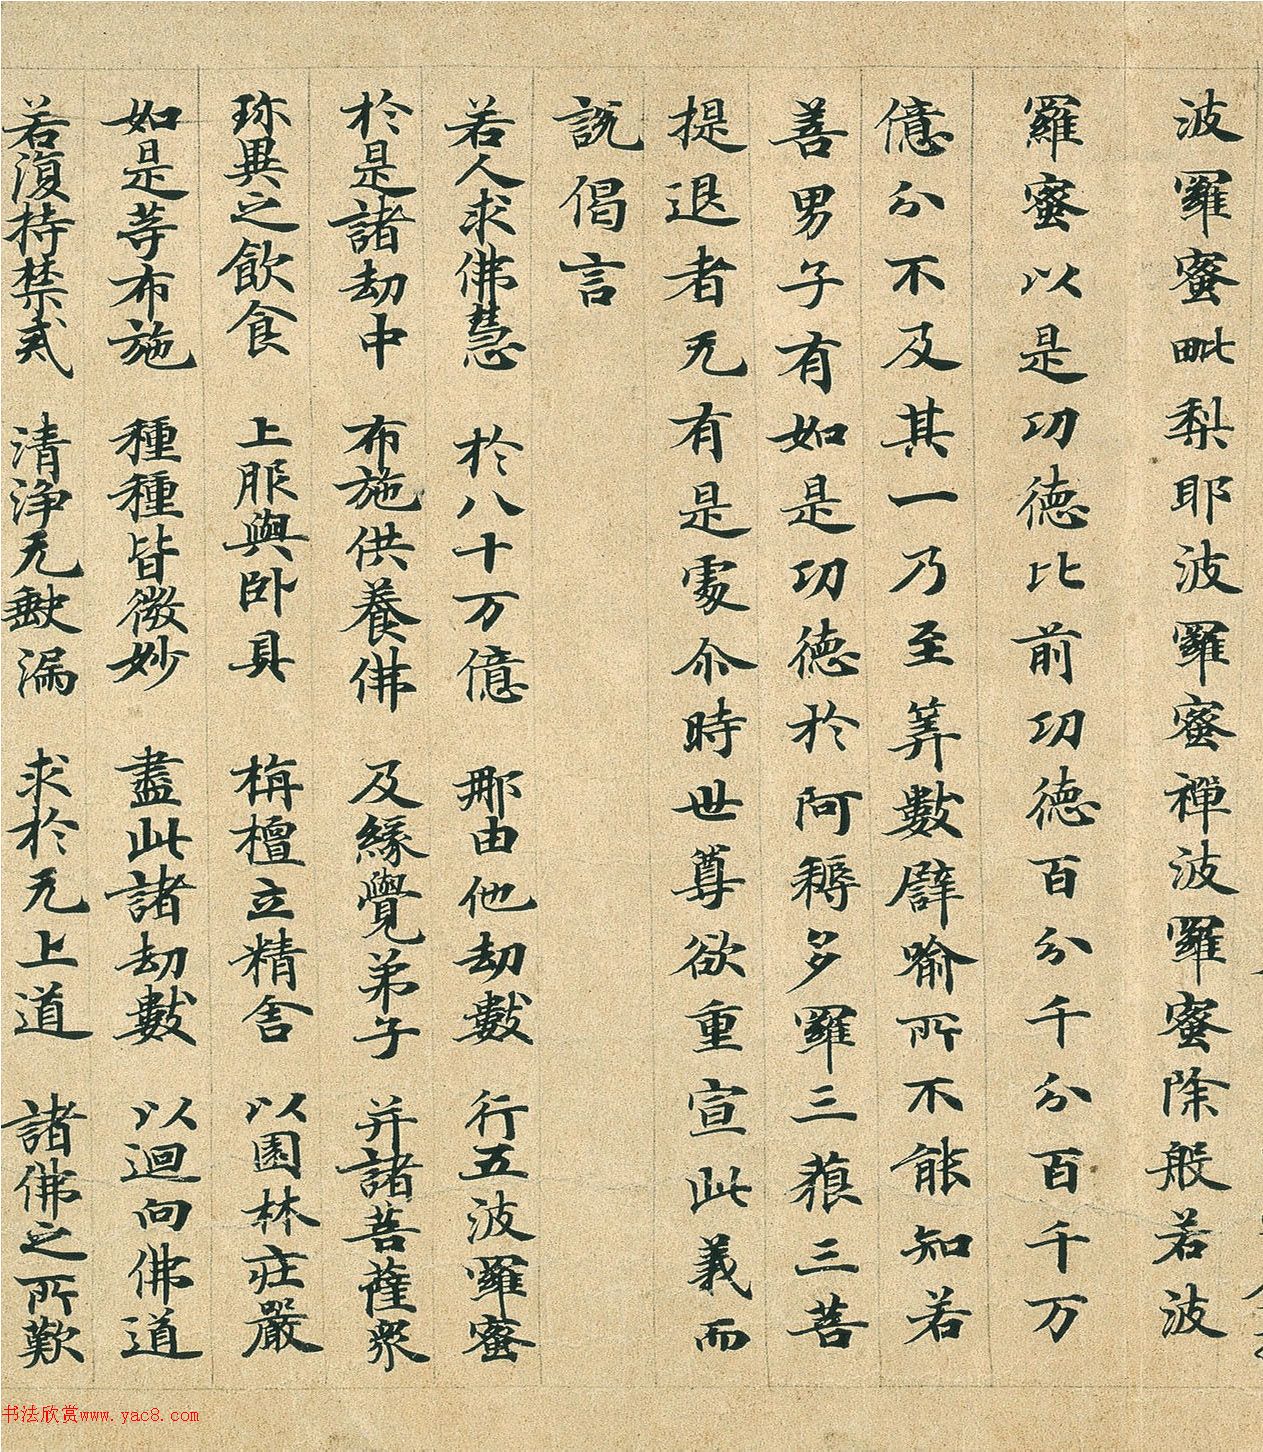 波羅蜜毗梨耶波羅蜜禪波羅蜜除般若波
羅蜜以是功德比前功德百分千分百千万
億分不及其一乃至筭數譬喻所不能知若
善男子有如是功德於阿耨多羅三藐三菩
提退者无有是處尒時世尊欲重宣此義而
說偈言
若人求佛慧 於八十万億 那由他劫數 行五波羅蜜
於是諸劫中 布施供養佛 及緣覺弟子 并諸菩薩衆
珎異之飲食 上服與卧具 栴檀立精舍 以園林莊嚴
如是等布施 種種皆微妙 盡此諸劫數 以迴向佛道
若復持禁戒 清淨无缺漏 求於无上道 諸佛之所歎
书法欣赏www.yac8.com